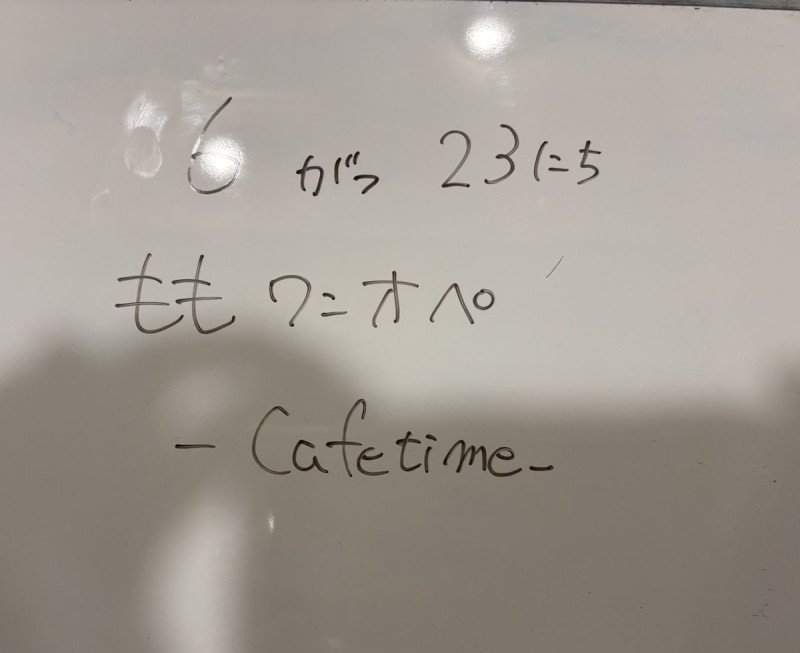 6がつ 23にち
もも ワニオペ
- Cafetime -